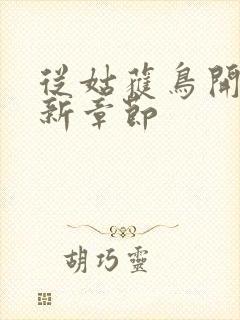 從姑蕥鳥開
新章節
胡巧靈